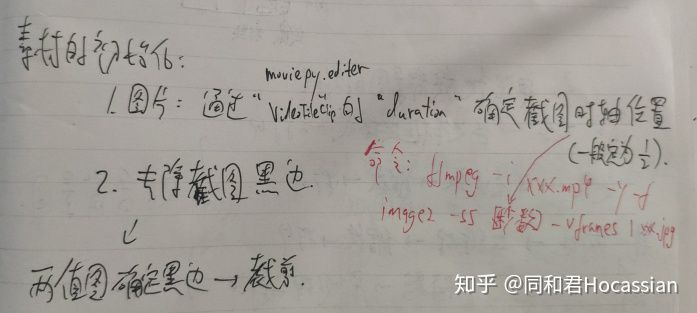 素材的初始化:
moviepy.editer
1. 图片: 通过“VideoFileClip”的“duration”确定截图时轴位置
(一般定为1/2).
命令: ffmpeg -i xxx.mp4 -y -f
image2 -ss [秒数] -vframes 1 xx.jpg
2. 去除截图黑边.
↓
两值图确定黑边→裁剪.
知乎 @同和君Hocassian